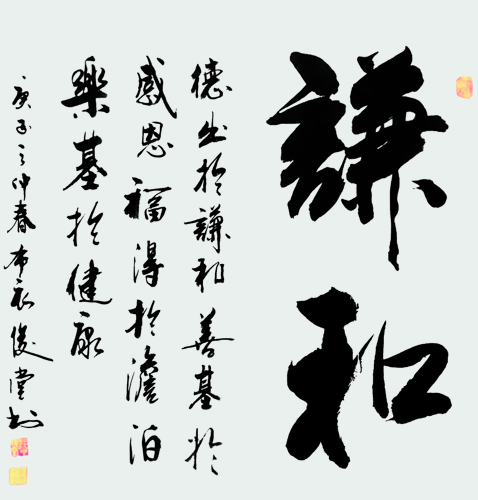 謙和
德出於謙和善基於
感恩福得於澹泊
樂基於健康
庚子之仲春布衣俊堂書